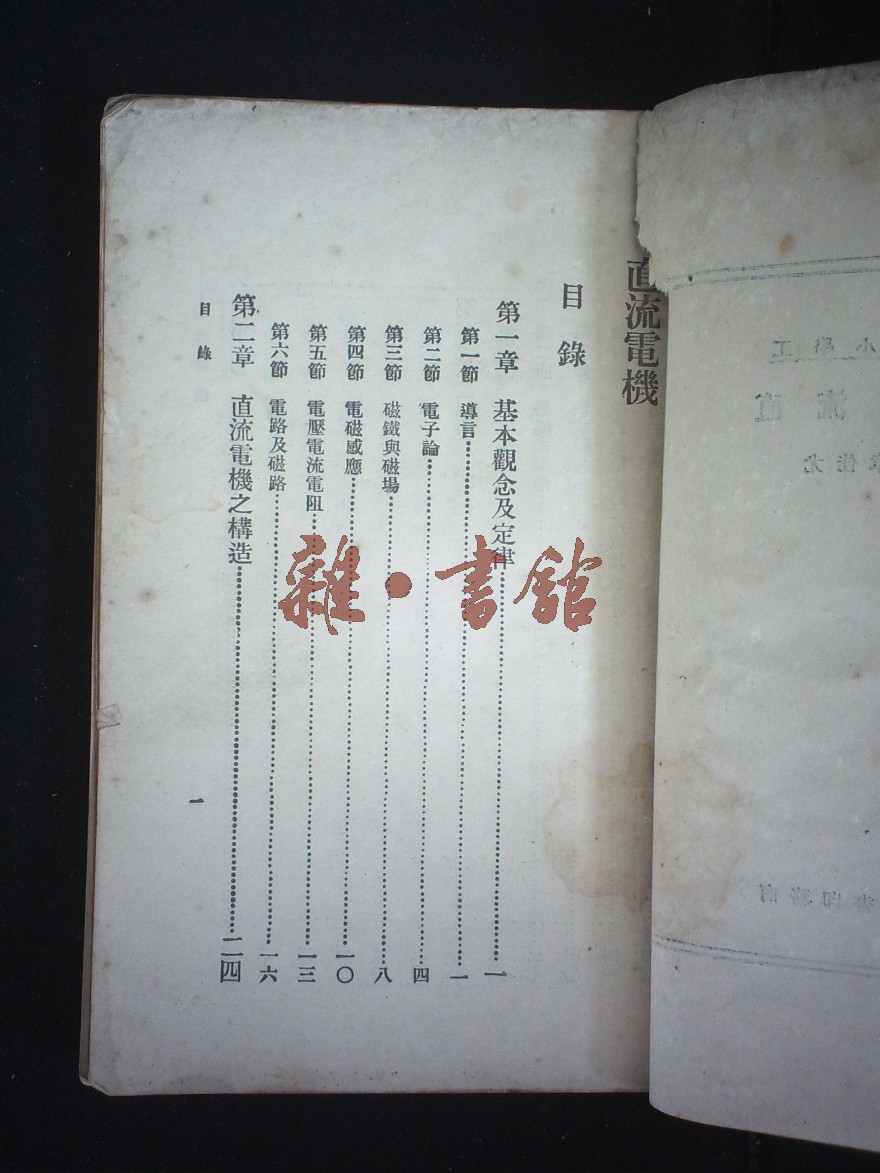 直流電機
目錄
第一章 基本觀念及定律 一
第一節 導言 一
第二節 電子論 四
第三節 磁鐵與磁場 八
第四節 電磁感應 一〇
第五節 電壓電流電阻 一三
第六節 電路及磁路 一六
第二章 直流電機之構造 二四
目錄
一
雜·書館